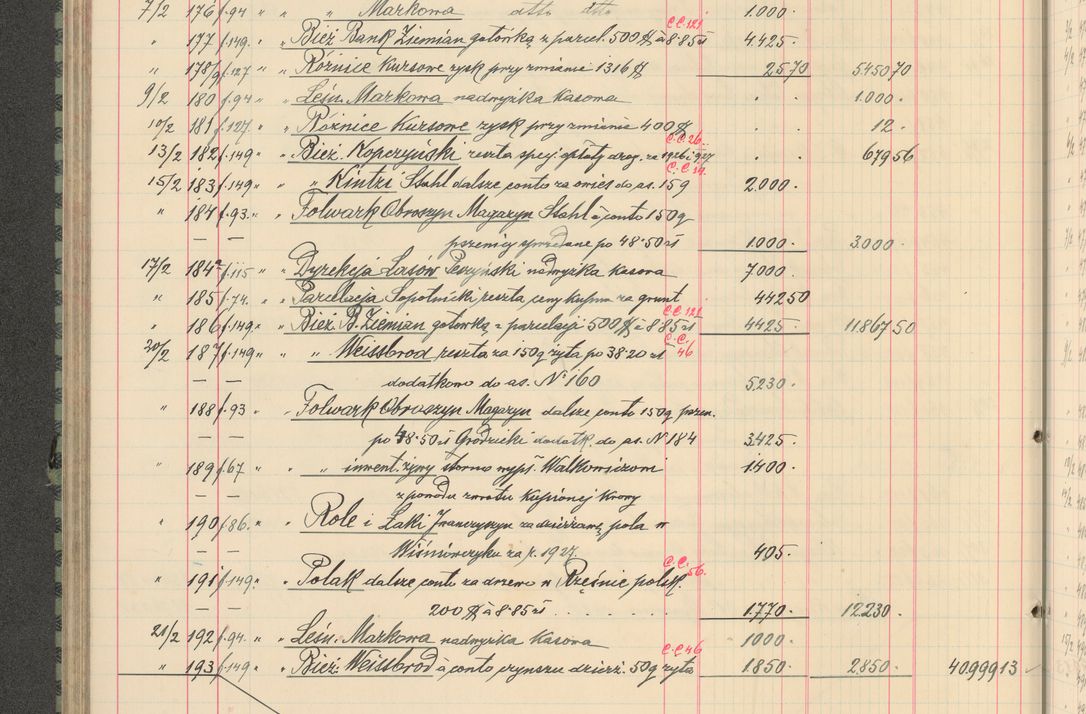 7/2 176 f.94 " " " Markowa dtto dtto 1.000.
" 177 f.149. " " Bież. Bank Ziemian gotówką z parcel. 500 $ à 8.85 zł C.C. 121. 4.425.
" 178/9 f.127 " " Różnice Kursowe zysk przy zmianie 1316 $ 25 70 5450 70
9/2 180 f.94 " " Leśn. Markowa nadwyżka Kasowa . . 1.000.
10/2 181 f.127. " " Różnice Kursowe zysk przy zmianie 400 $ . . 12.
13/2 182 f.149 " " Bież. Kopczyński reszta spec. opłaty drog. za 1926 i 927 C.C. 26. . . 679 56
15/2 183 f.149 " " " Kintzi Stahl dalsze conto za owies do as. 159 C.C. 19. 2.000.
" 184 f.93. " " Folwark Obroszyn Magazyn Stahl à conto 150 q
— — pszenicy sprzedane po 48.50 zł 1.000. 3.000.
17/2 184a f.115 " " Dyrekcja Lasów Peszyński nadwyżka Kasowa 7.000.
" 185 f.74. " " Parcelacja Sopotnicki reszta ceny Kupna za grunt 442 50
" 186 f.149 " " Bież. B. Ziemian gotówką z parcelacji 500 $ à 8.85 zł C.C. 121 4425. 11.867 50
20/2 187 f.149 " " " Weissbrod reszta za 150 q żyta po 38.20 zł C.C. 46
— — dodatkowo do as. No 160 5.230.
" 188 f.93 " " Folwark Obroszyn Magazyn dalsze conto 150 q pszen.
— — po 48.50 zł Grodzicki dodatk. do as. N 184 3.425.
" 189 f.67 " " " inwent. żywy storno wypł. Walkowiczowi 1400.
— — z powodu zwrotu Kupionej Krowy
" 190 f.86. " " Role i Łąki Franczyszyn za dzierżawę pola w
— — Wiśniowczyku za r. 1927. 405.
" 191 f.149 " " Polak dalsze conto za drzewo w Rześnie polsk. C.C. 56.
— 200 $ à 8.85 zł . . . . . . . 1.770. 12.230.
21/2 192 f.94. " " Leśn. Markowa nadwyżka Kasowa 1000.
" 193 f.149 " " Bież. Weissbrod a conto czynszu dzierż. 50 q żyta C.C. 46 1.850. 2.850. 40.999 13